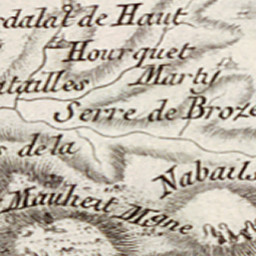 dalat de Haut
Hourquet
tailles
Marty
Serre de Broze
s de la
Nabails
Mauheit Mgne